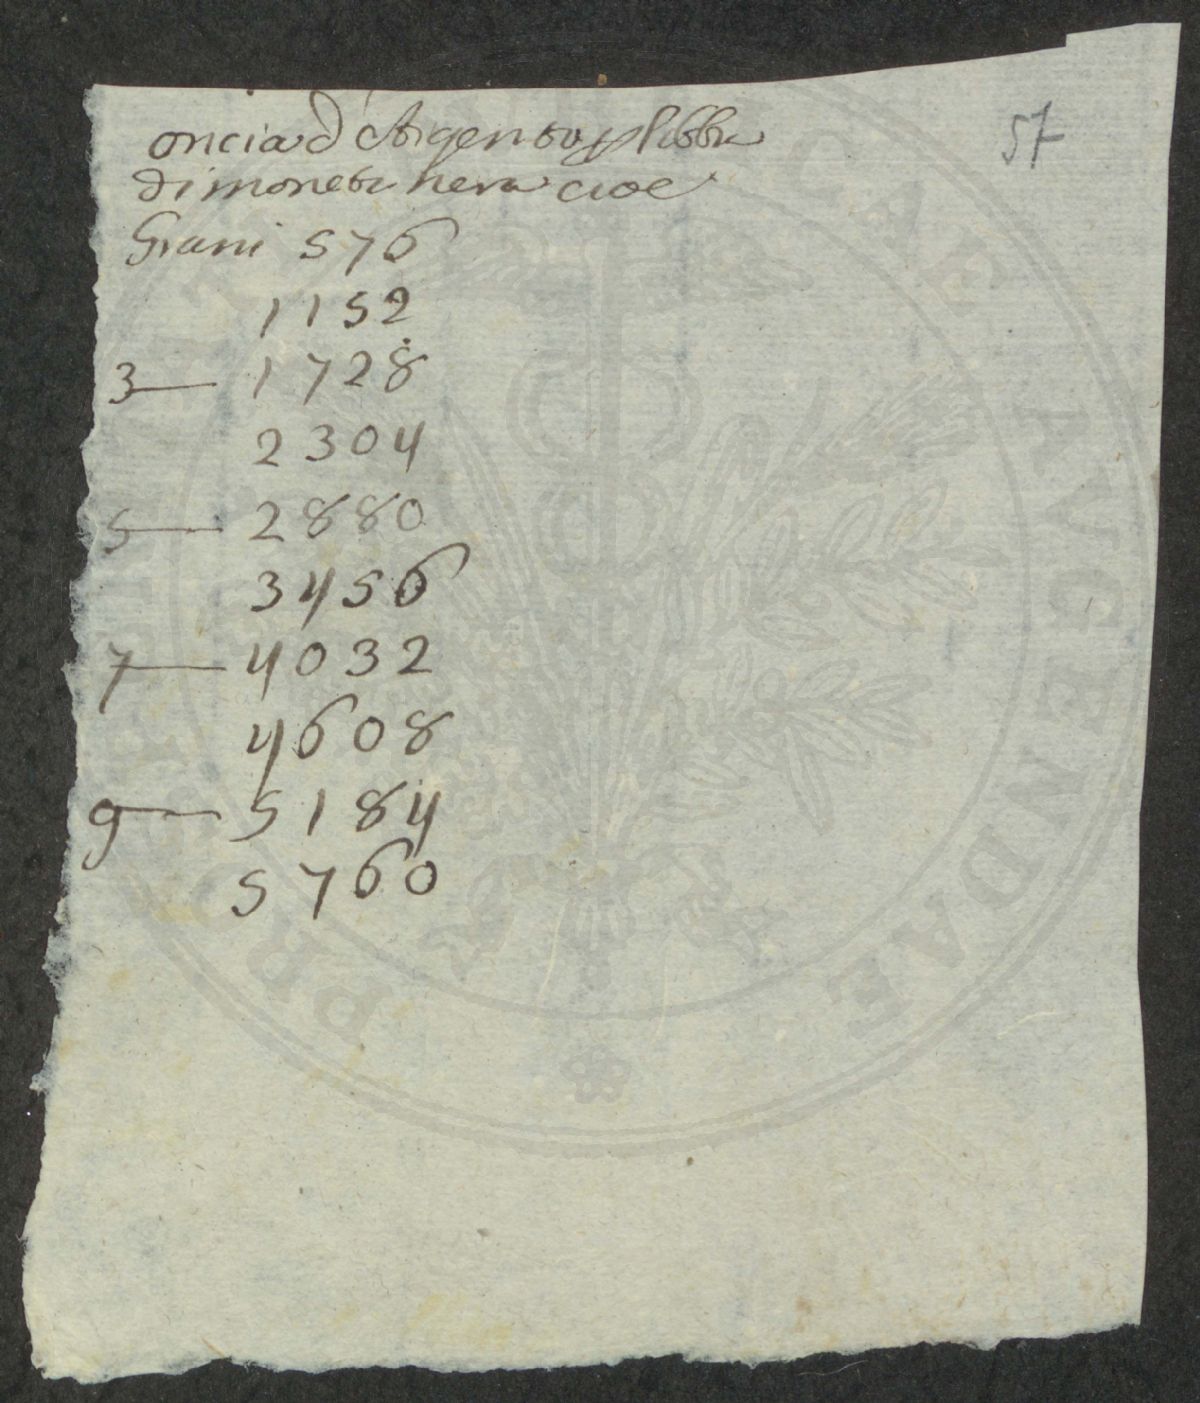 57
oncia d'Argento p libbra
di moneta nera cioe
Grani 576
1152
3— 1728
2304
5— 2880
3456
7— 4032
4608
9— 5184
5760
PRO AVGENDAE